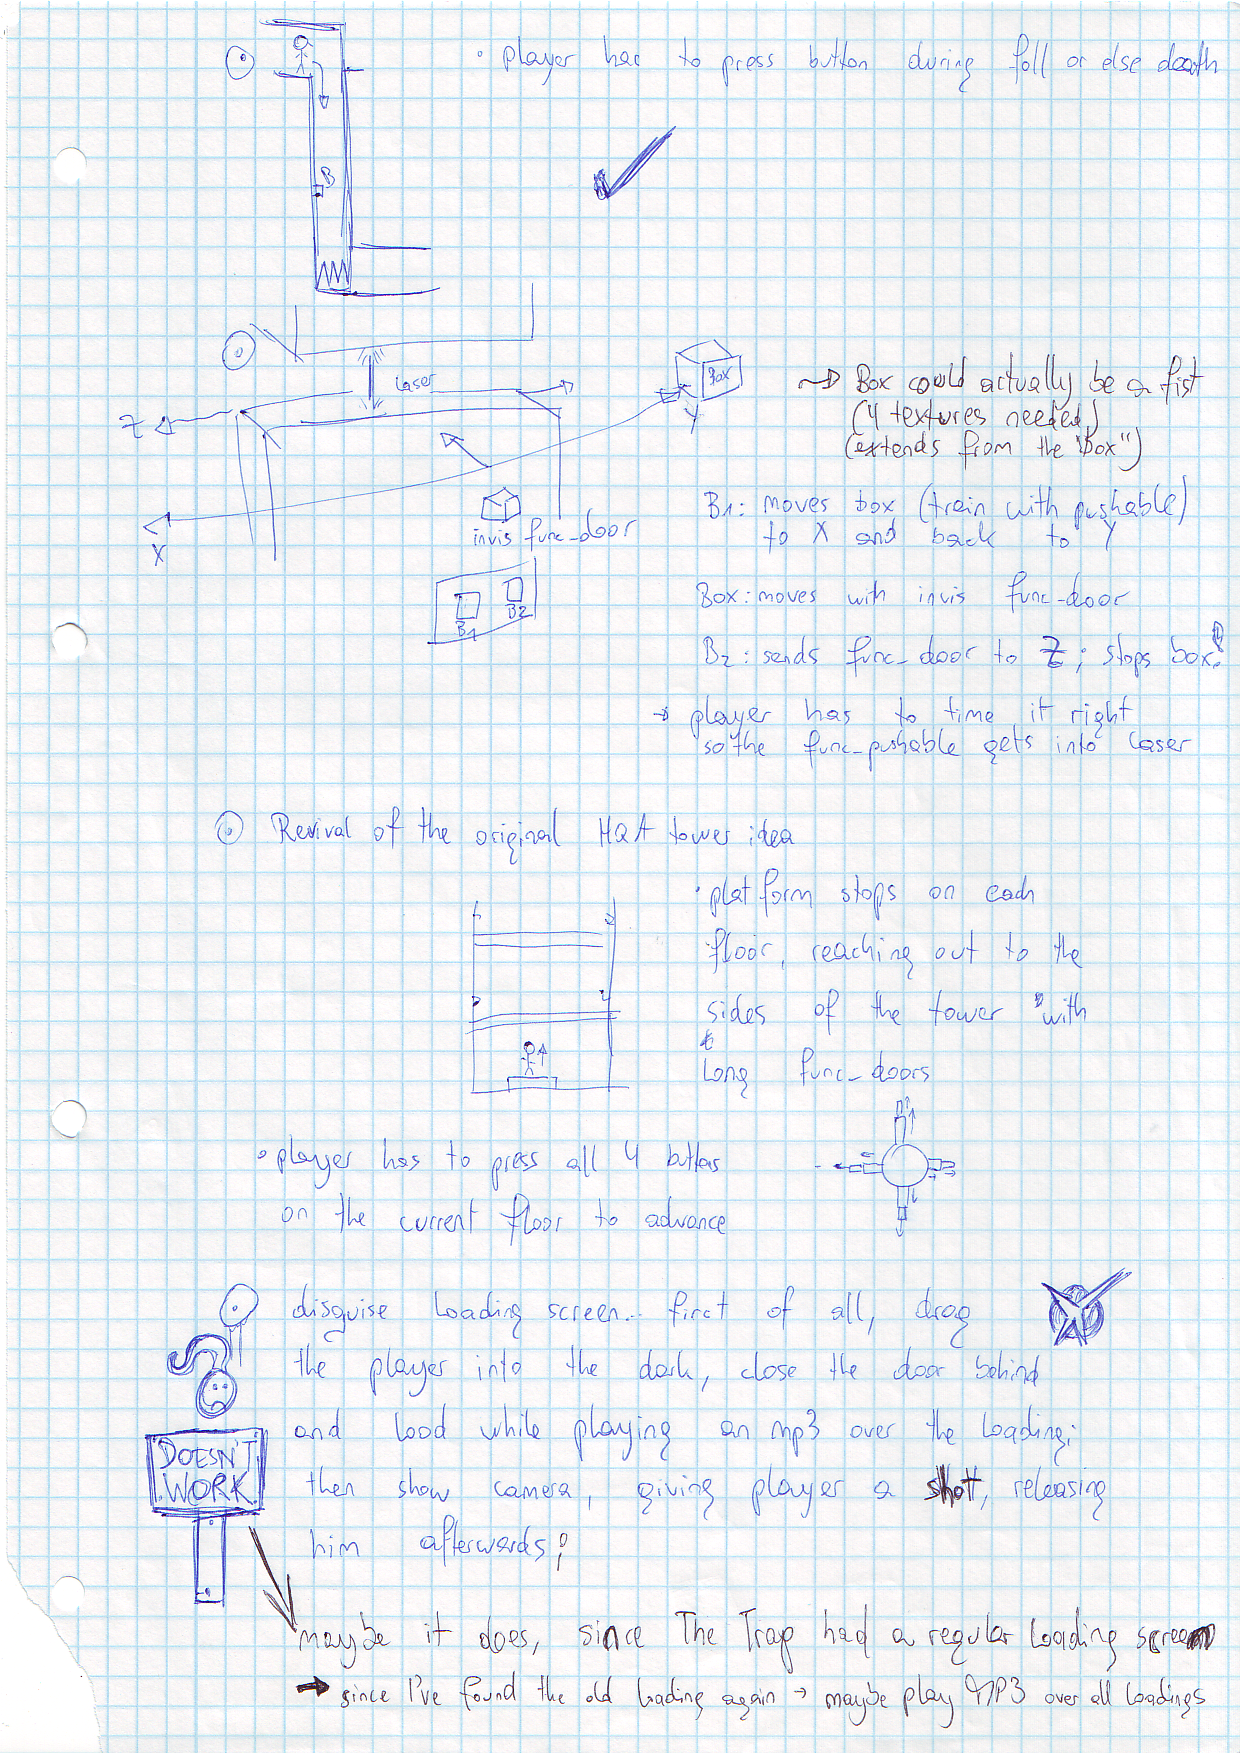 • player has to press button during fall or else death
B
Laser
Z
Box
Y
→ Box could actually be a fist
(4 textures needed)
(extends from the "box")
X
invis func_door
B1
B2
B1: moves box (train with pushable)
to X and back to Y
Box: moves with invis func_door
B2: sends func_door to Z; stops box!
→ player has to time it right
so the func_pushable gets into laser
Revival of the original HQA tower idea
• platform stops on each
floor, reaching out to the
sides of the tower with
long func_doors
• player has to press all 4 buttons
on the current floor to advance
disguise loading screen... first of all, drag
the player into the dark, close the door behind
and load while playing an mp3 over the loading;
then show camera, giving player a shot, releasing
him afterwards;
DOESN'T
WORK
maybe it does, since The Trap had a regular loading screen
→ since I've found the old loading again → maybe play MP3 over all loadings